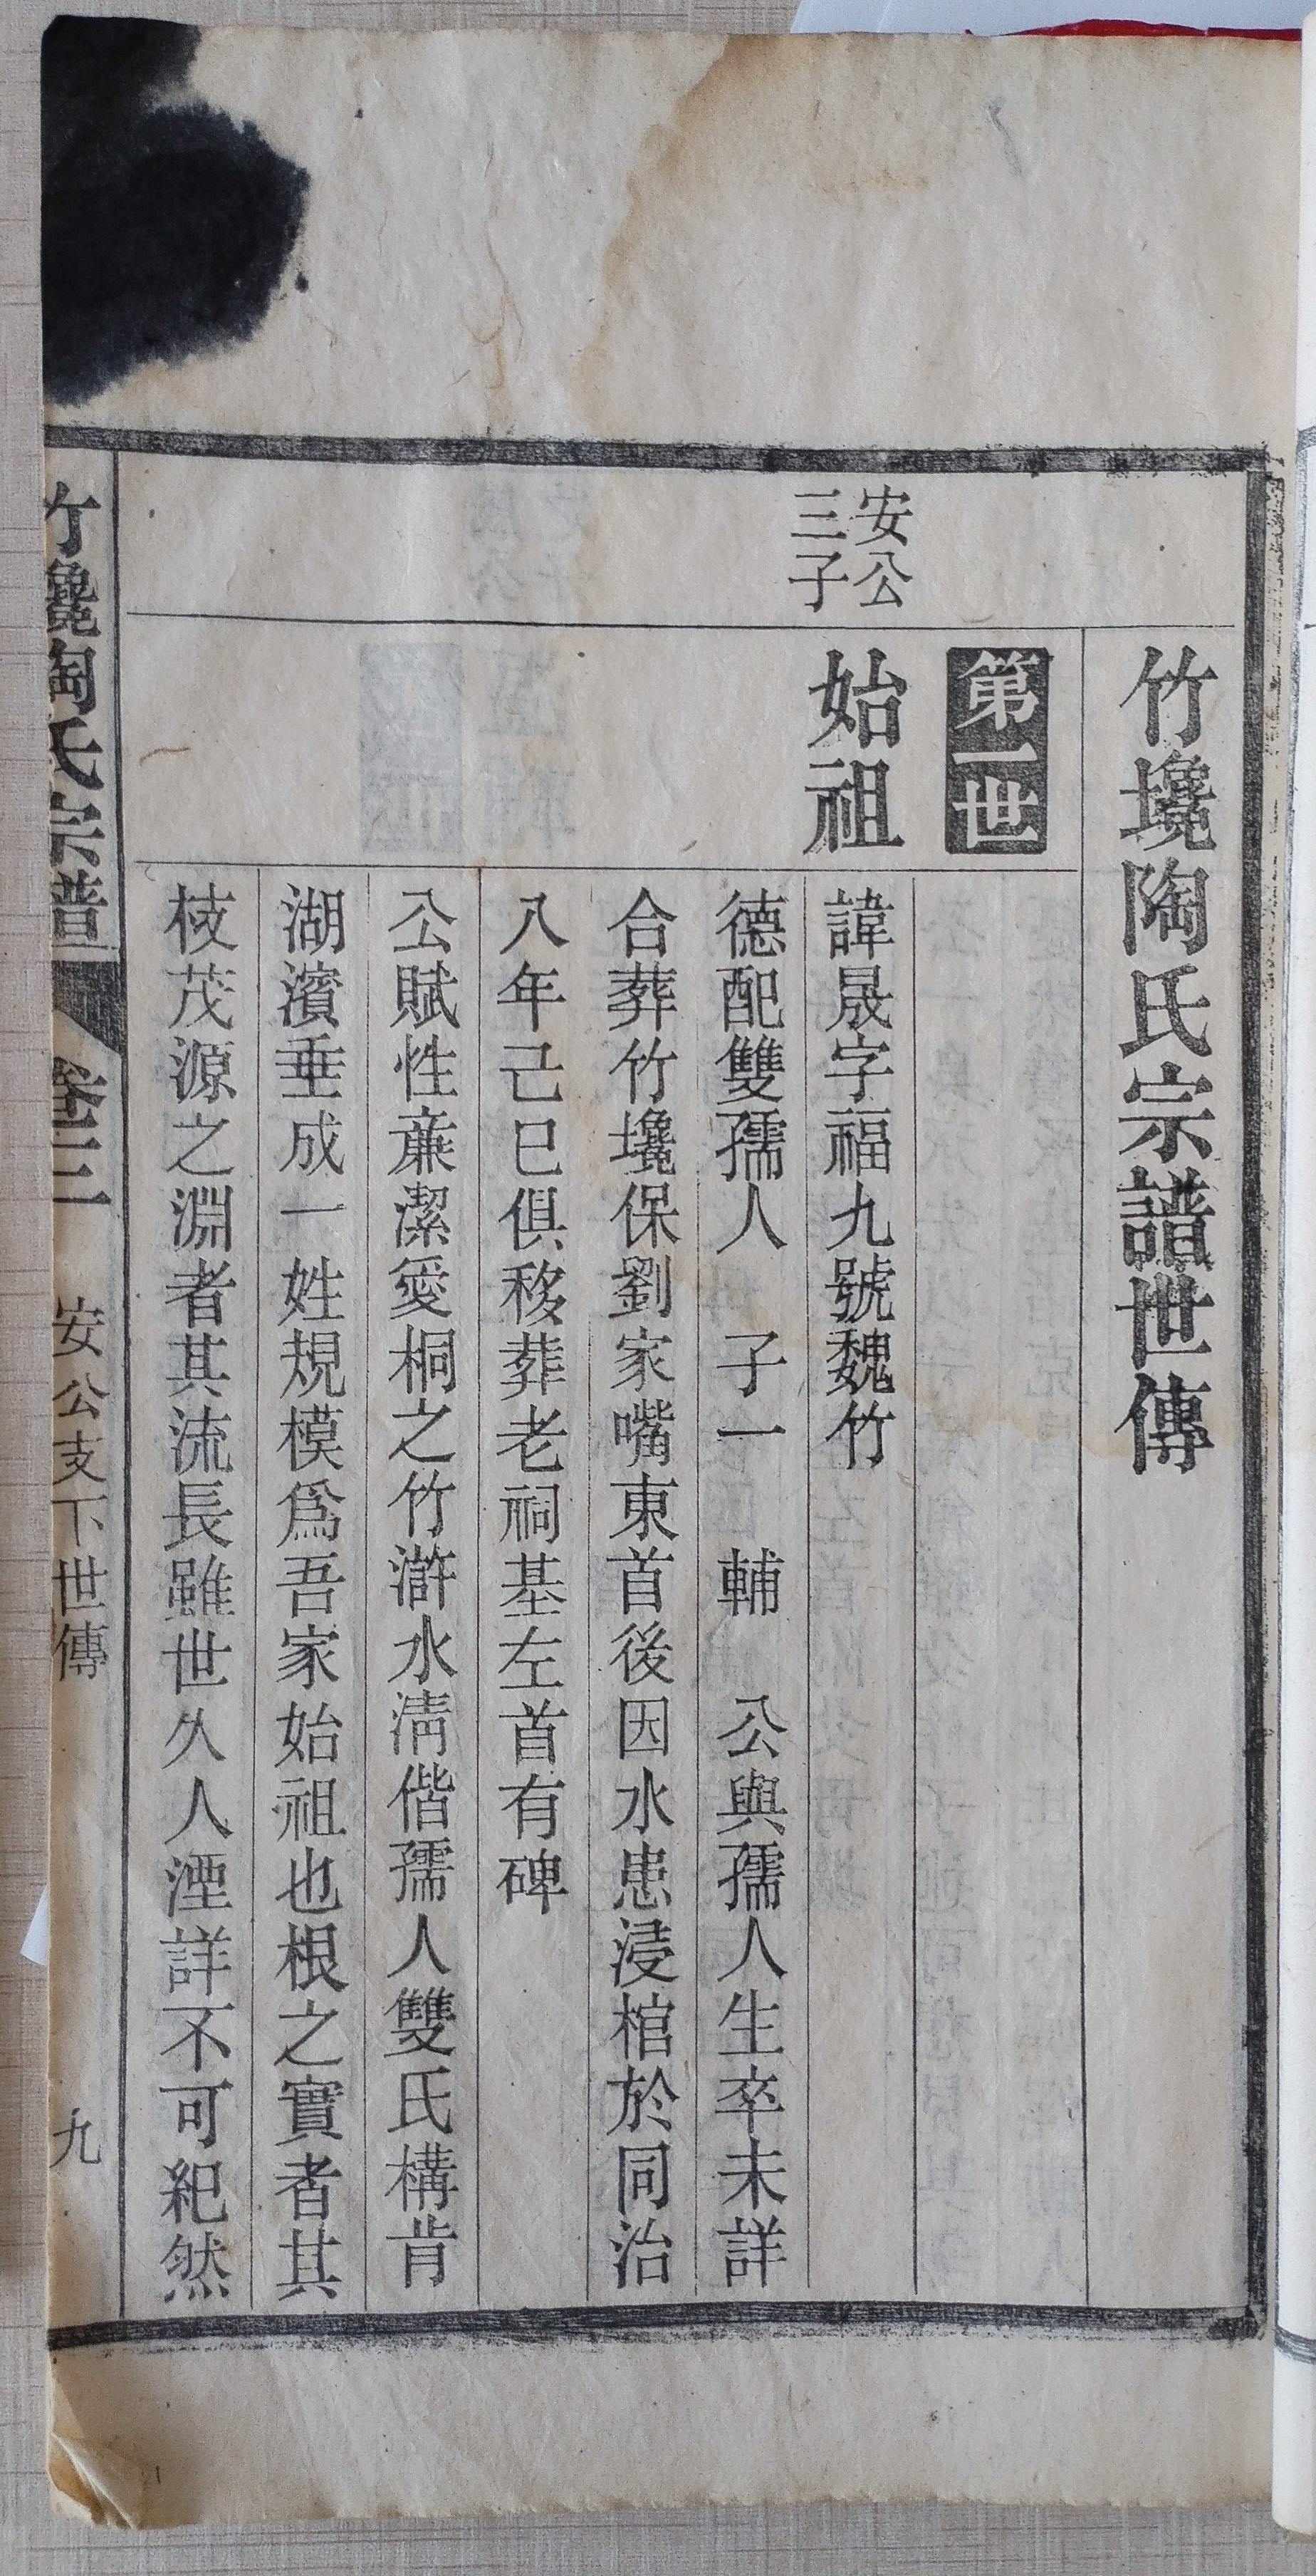 竹墝陶氏宗譜世傳
第一世
安公
三子
始祖
諱晟字福九號魏竹
德配雙孺人 子一 輔 公與孺人生卒未詳
合葬竹墝保劉家嘴東首後因水患浸棺於同治
八年己巳俱移葬老祠基左首有碑
公賦性亷潔愛桐之竹滸水淸偕孺人雙氏構肯
湖濱垂成一姓規模爲吾家始祖也根之實者其
枝茂源之淵者其流長雖世久人湮詳不可紀然
陶氏宗譜 卷三 安公支下世傳 九